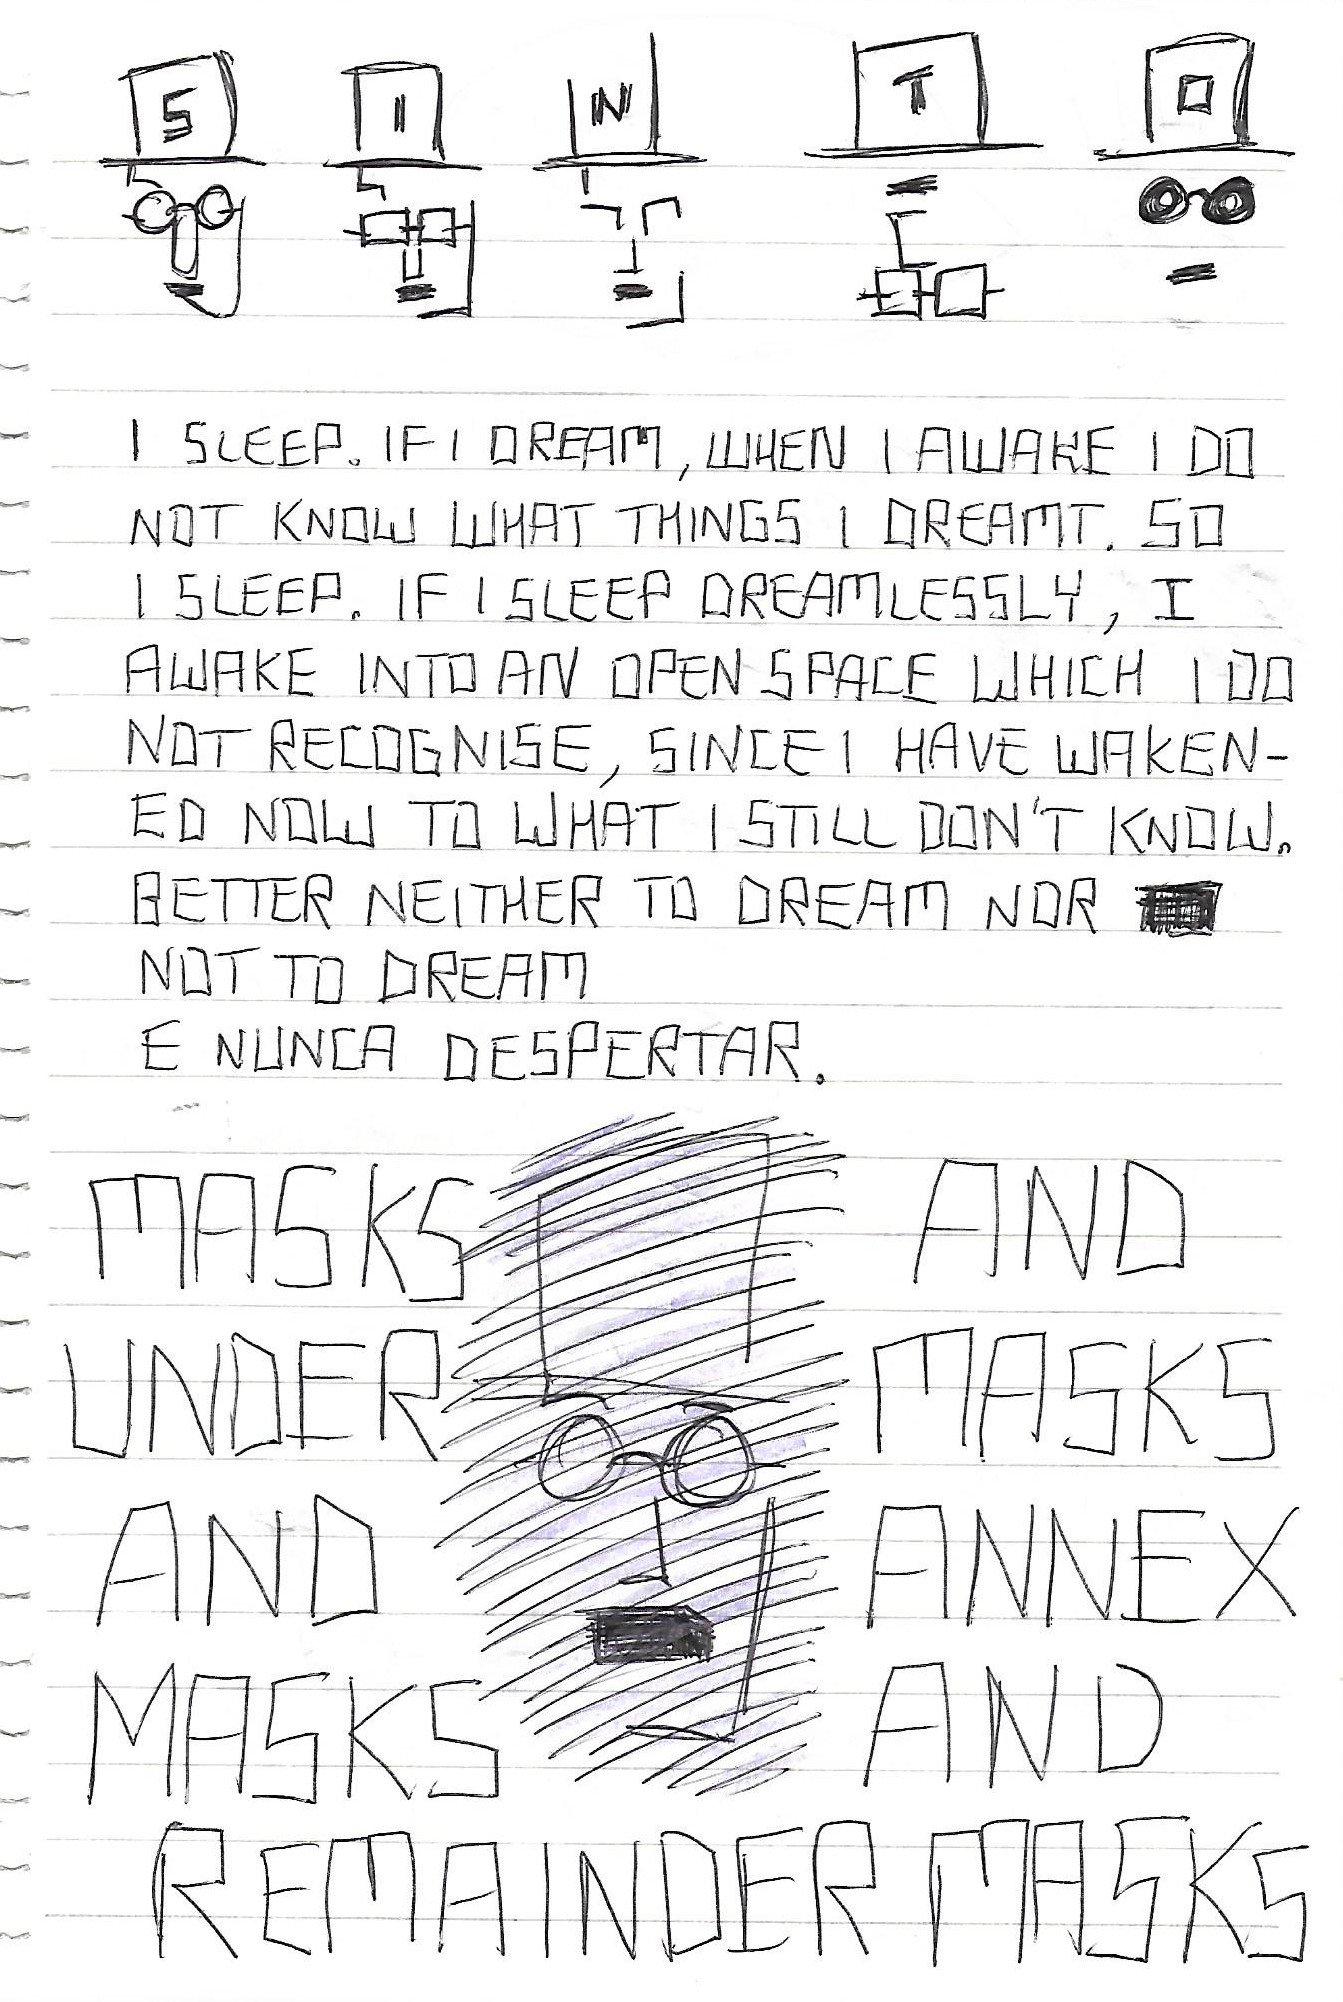 S I N T O
I SLEEP. IF I DREAM, WHEN I AWAKE I DO
NOT KNOW WHAT THINGS I DREAMT. SO
I SLEEP. IF I SLEEP DREAMLESSLY, I
AWAKE INTO AN OPEN SPACE WHICH I DO
NOT RECOGNISE, SINCE I HAVE WAKEN-
ED NOW TO WHAT I STILL DON'T KNOW.
BETTER NEITHER TO DREAM NOR
NOT TO DREAM
E NUNCA DESPERTAR.
MASKS
UNDER
AND
MASKS
AND
MASKS
ANNEX
AND
REMAINDER MASKS